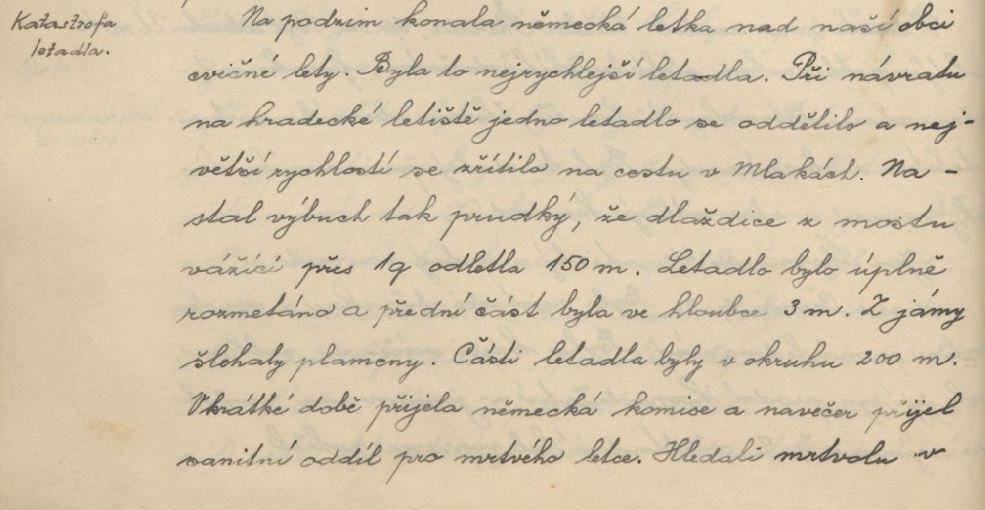 Katastrofa
letadla.
Na podzim konala německá letka nad naší obci
cvičné lety. Byla to nejrychlejší letadla. Při návratu
na hradecké letiště jedno letadlo se oddělilo a nej-
větší rychlostí se zřítilo na cestu v Mlakách. Na-
stal výbuch tak prudký, že dlaždice z mostu
vážící přes 1q odletla 150 m. Letadlo bylo úplně
rozmetáno a přední část byla ve hloubce 3 m. Z jámy
šlehaly plameny. Části letadla byly v okruhu 200 m.
V krátké době přijela německá komise a navečer přijel
sanitní oddíl pro mrtvého letce. Hledali mrtvolu v